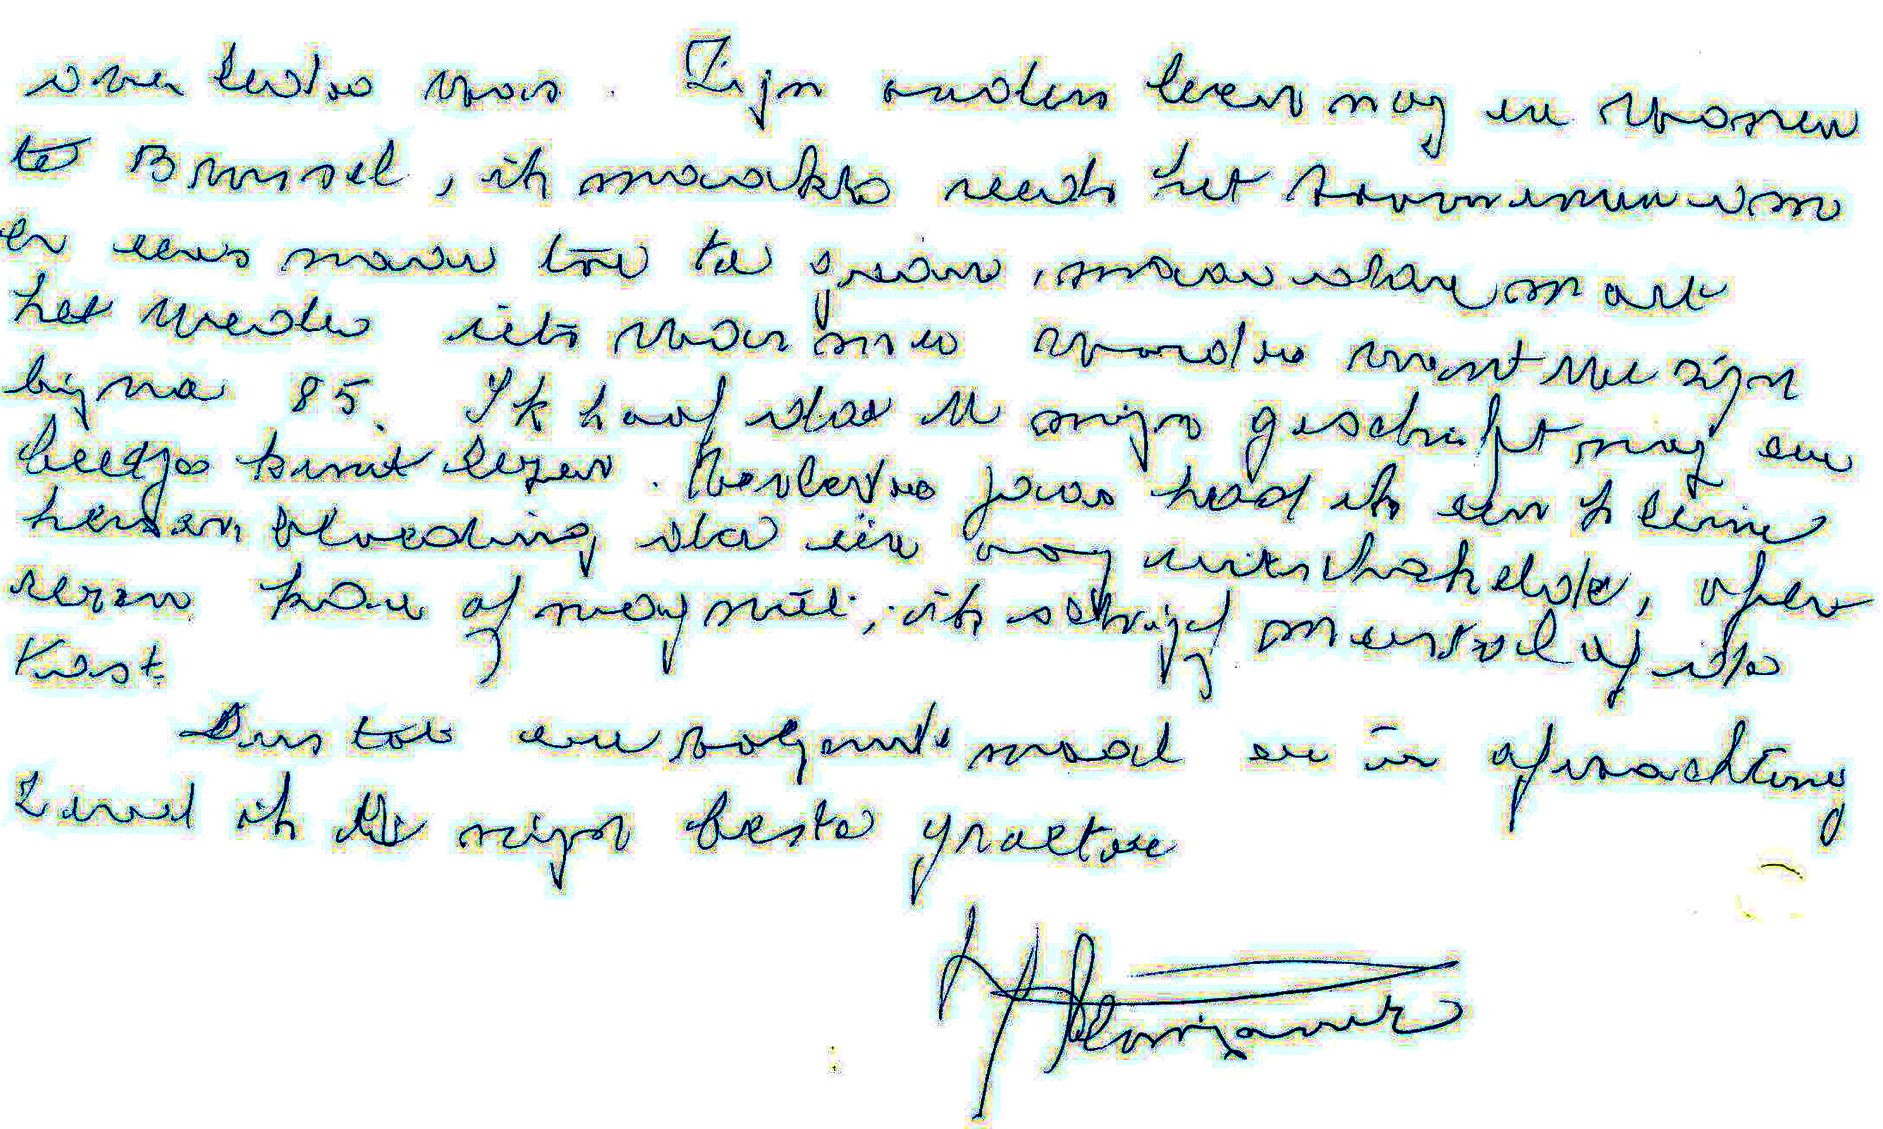 was. Zijn ouders leven nog en wonen
te Brussel, ik maakte reeds het voornemen om
er eens naar toe te gaan, maar dan moet
het weder iets warmer worden want we zijn
bijna 85. Ik hoof dat U mijn geschrift nog een
beetje kunt lezen. Verleden jaar had ik een kleine
hersenbloeding dat één oog uitschakelde,
lezen kan of mag niet, ik schrijf meestal op de
tast.
Dus tot een volgende maal en in afwachting
zend ik U mijn beste groeten